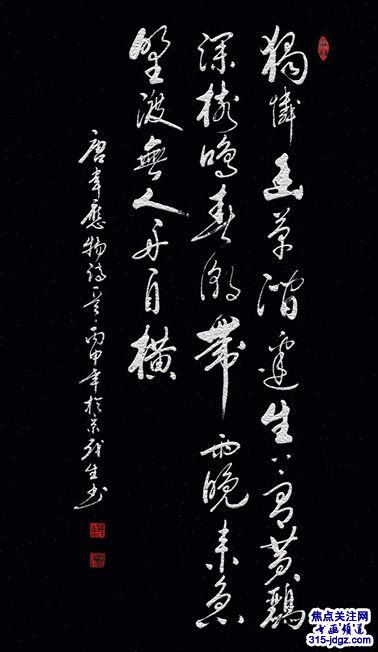 獨憐幽草澗邊生上有黃鸝
深樹鳴春潮帶雨晚來急
野渡無人舟自橫
唐韋應物詩一首丙申年於京生书
焦点关注网
书画频道
315-jdgz.com